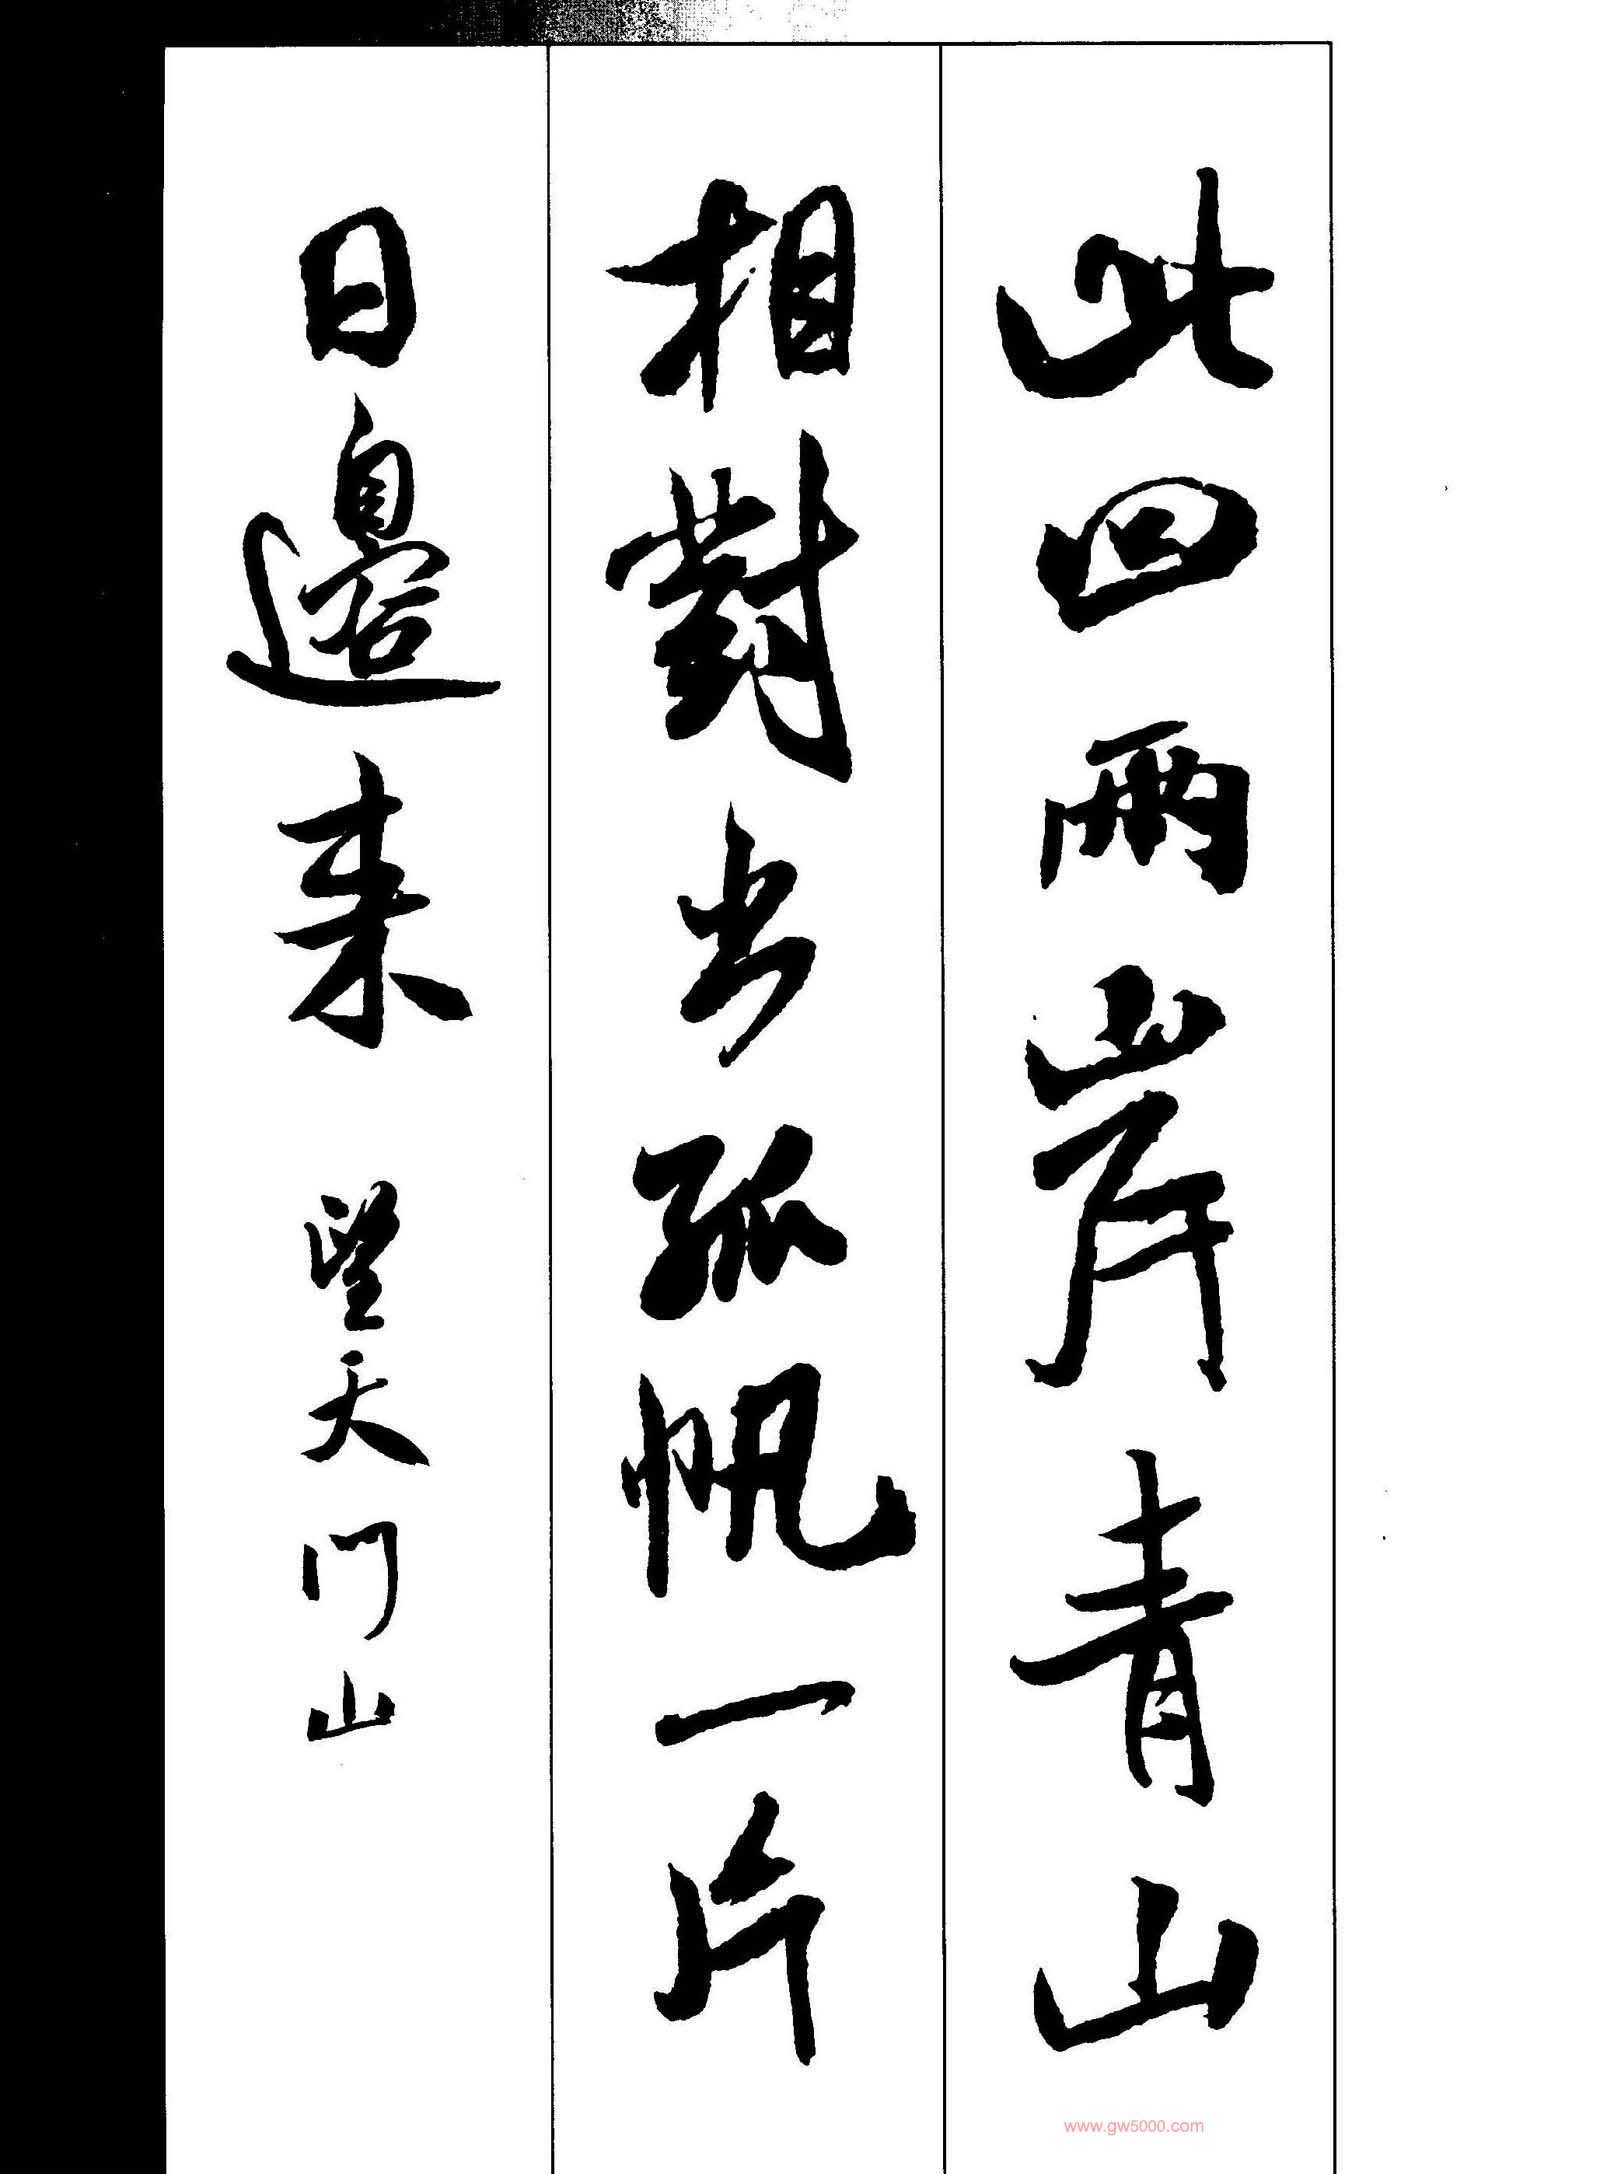 此回兩岸青山
相對出孤帆一片
日邊来 望天门山
www.gw5000.com